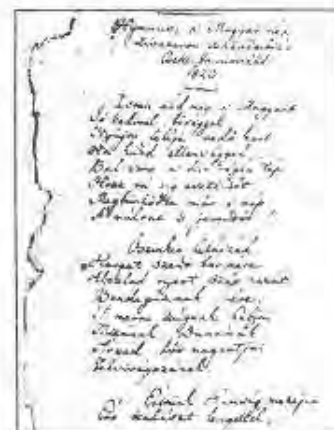 Hymnus, a Magyar nép
zivataros századaiból
Cseke
1823
Isten áldd meg a Magyart
Jó kedvvel, bőséggel
Nyújts feléje védő kart
Ha küzd ellenséggel
Bal sors a kit régen tép
Hozz rá víg esztendőt
Megbünhödte már e nép
A multat s jövendőt!
Őseinket felhozád
Kárpát szent bérczére
Általad nyert szép hazát
Bendegúznak vére.
S merre zúgnak habjai
Tiszának Dunának
Árpád hős magzatjai
Felvirágozának
Értünk Kunság mezején
Ért kalászt lengettél,